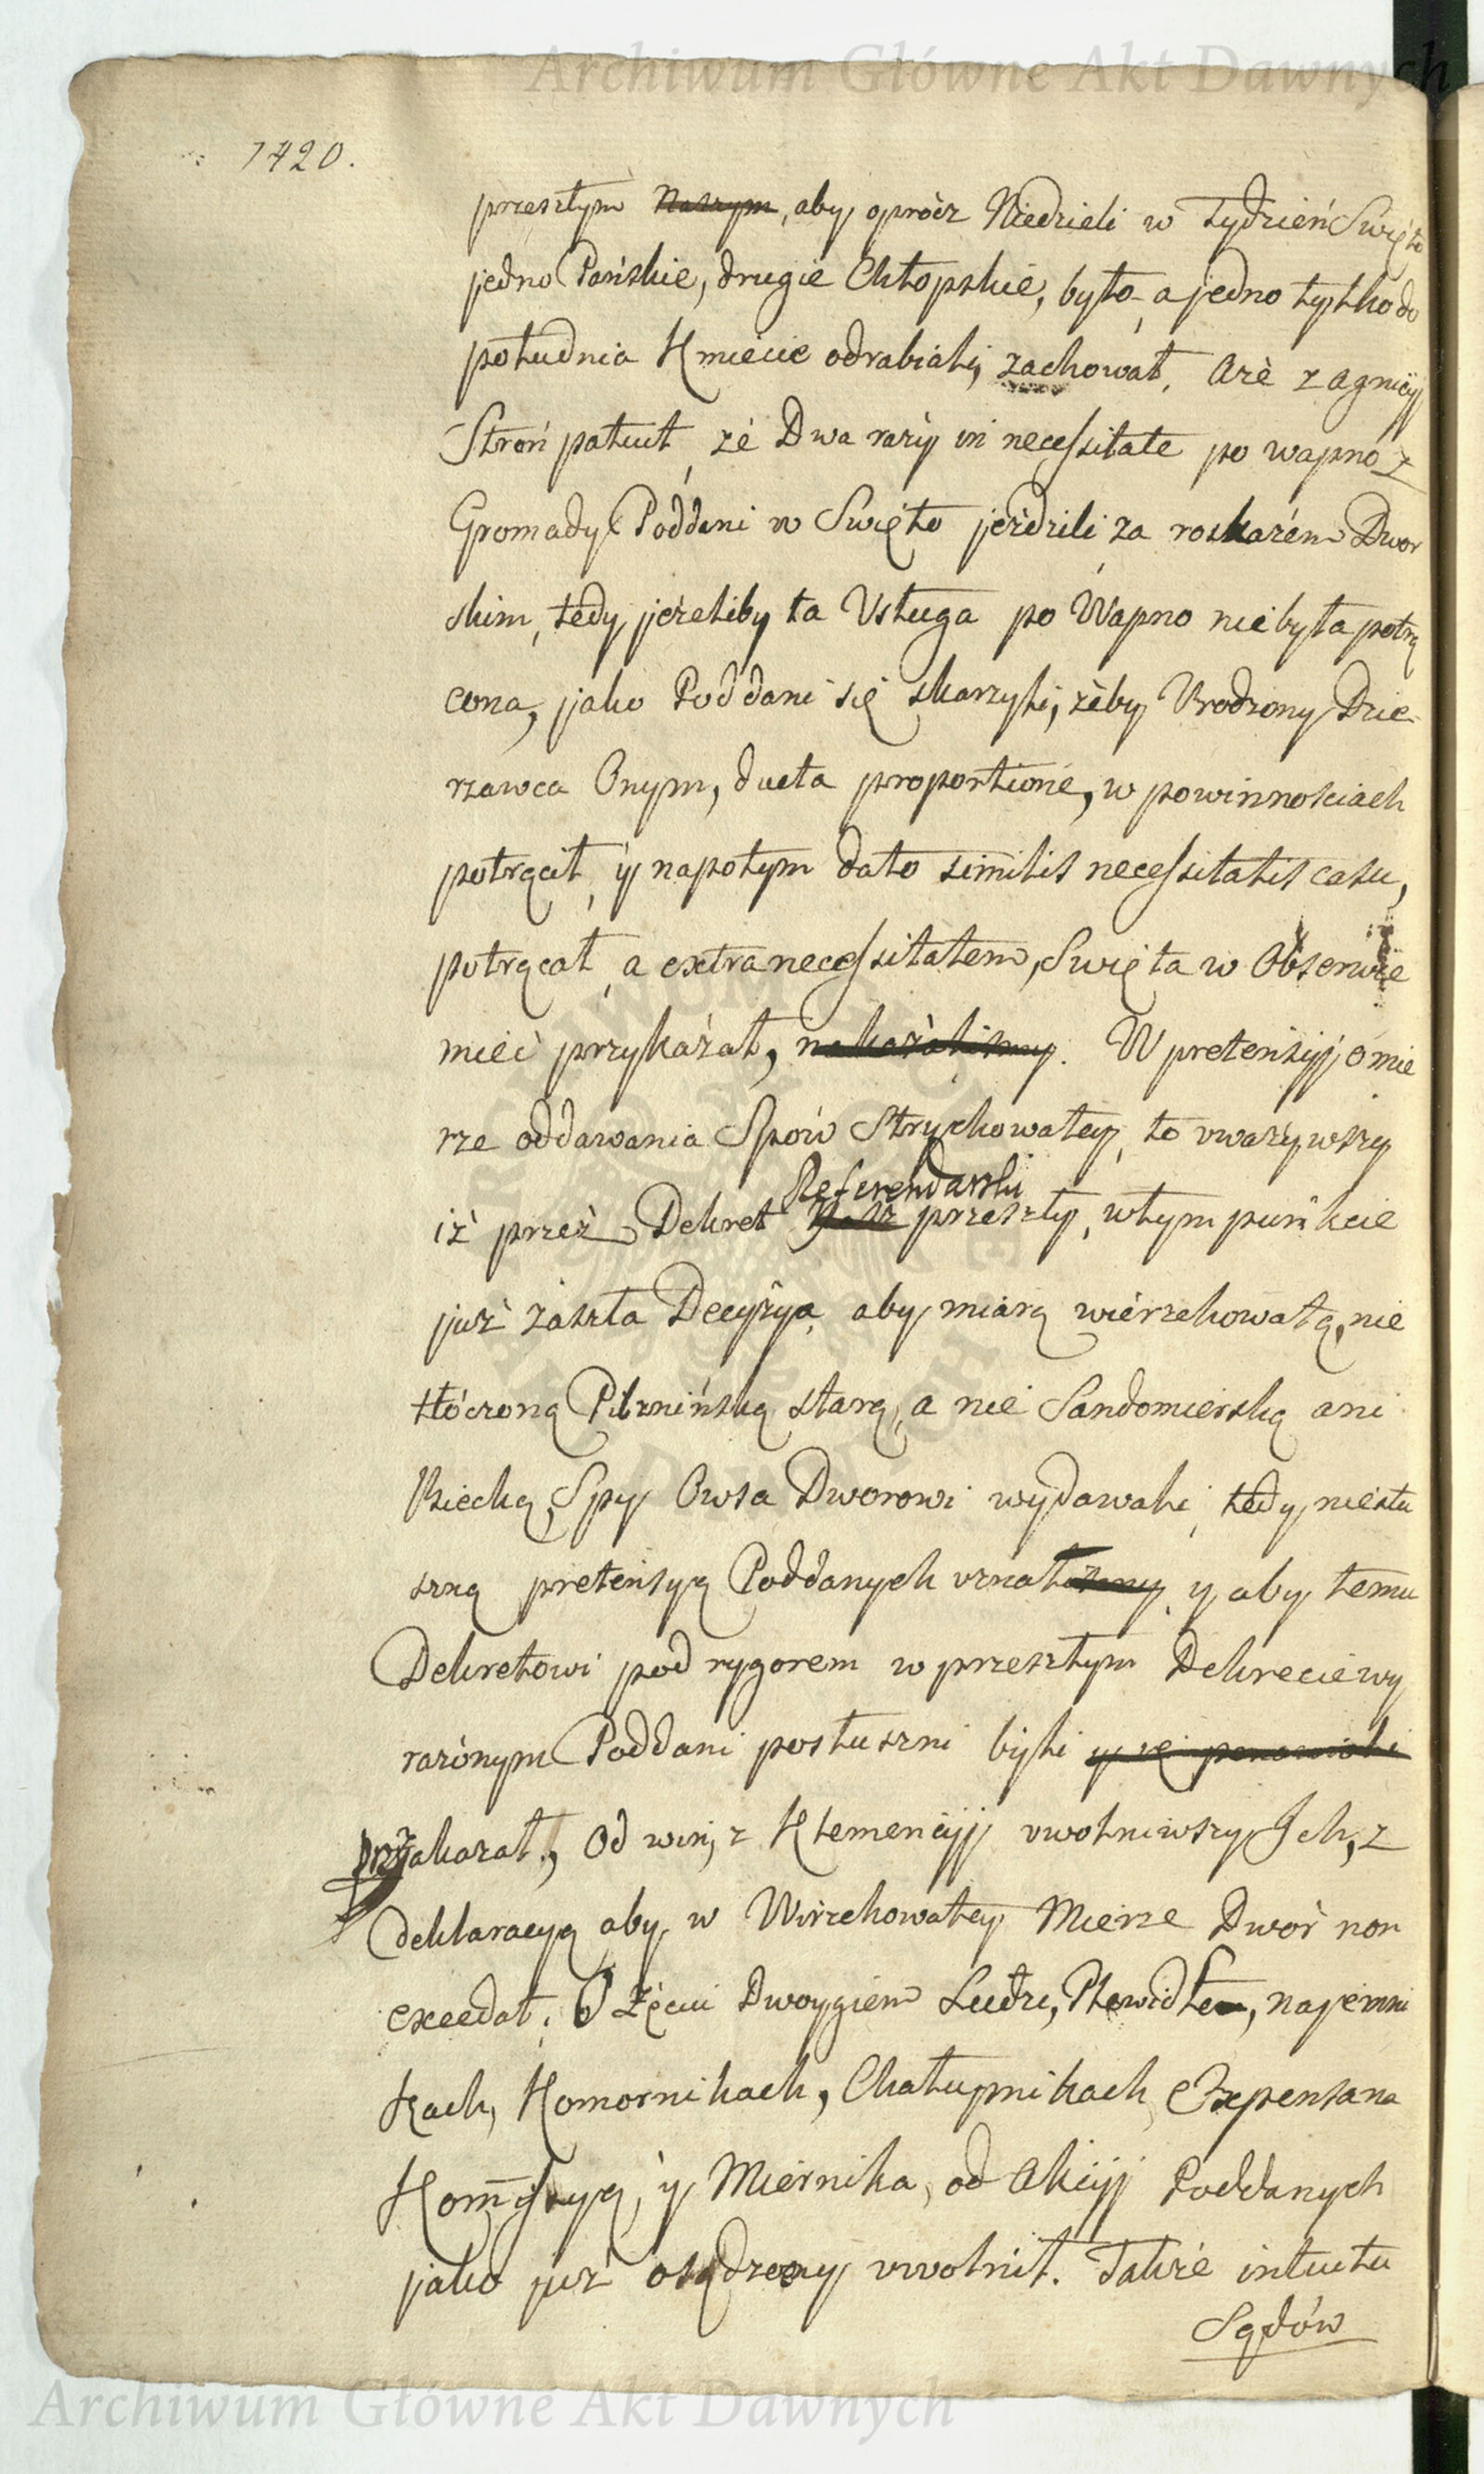 Archiwum Główne Akt Dawnych
1420.
przeszłym Naszym, aby oprócz Niedzieli w Tydzień Swięto
jedno Pańskie, drugie Chłopskie, było, a jedno tylko do
południa Kmiecie odrabiali, zachował, Aże z
Stron patuit, że Dwa razy in necessitate po wapno z
Gromady Poddani w Swięto jeździli za roskazem Dwor
skim, tedy jeżeliby ta Usługa po Wapno niebyła potrą
cona, jako Poddani się skarzyli, żeby Urodzony Dzie-
rzawca Onym, ducta proportione, w powinnosciach
potrącił, y napotym dato similis necessitatis casu,
potrącał, a extra necessitatem, Swięta w Obserwie
mieć przykazał, nakazalismy. W pretensyji o mie
rze oddawania Spów Strychowałey, to uważywszy
Referendarski
iż przez Dekret Nasz przeszły, wtym punkcie
już zaszła Decyzya, aby miarą wierzchowatą, nie
tłóczoną Pilznińską starą, a nie Sandomierską ani
Biecką, Spy Owsa Dworowi wydawali, tedy niesłu
szną pretensyą Poddanych uznalismy, y aby temu
Dekretowi pod rygorem w przeszłym Dekrecie wy
rażonym Poddani posłuszni byli
przykazał, Od win, z Klemencyji uwolniwszy Ich, z
deklaracyą aby w Wirzchowatey Mierze Dwór non
excedat, O Zęciu Dwoygiem Ludzi, najemni
kach, Komornikach, Chałupnikach, Expensa na
Kommissyą, y Miernika, od Akcyji Poddanych
jako już osądzoney uwolnił. Także intuitu
Sądów
Archiwum Główne Akt Dawnych